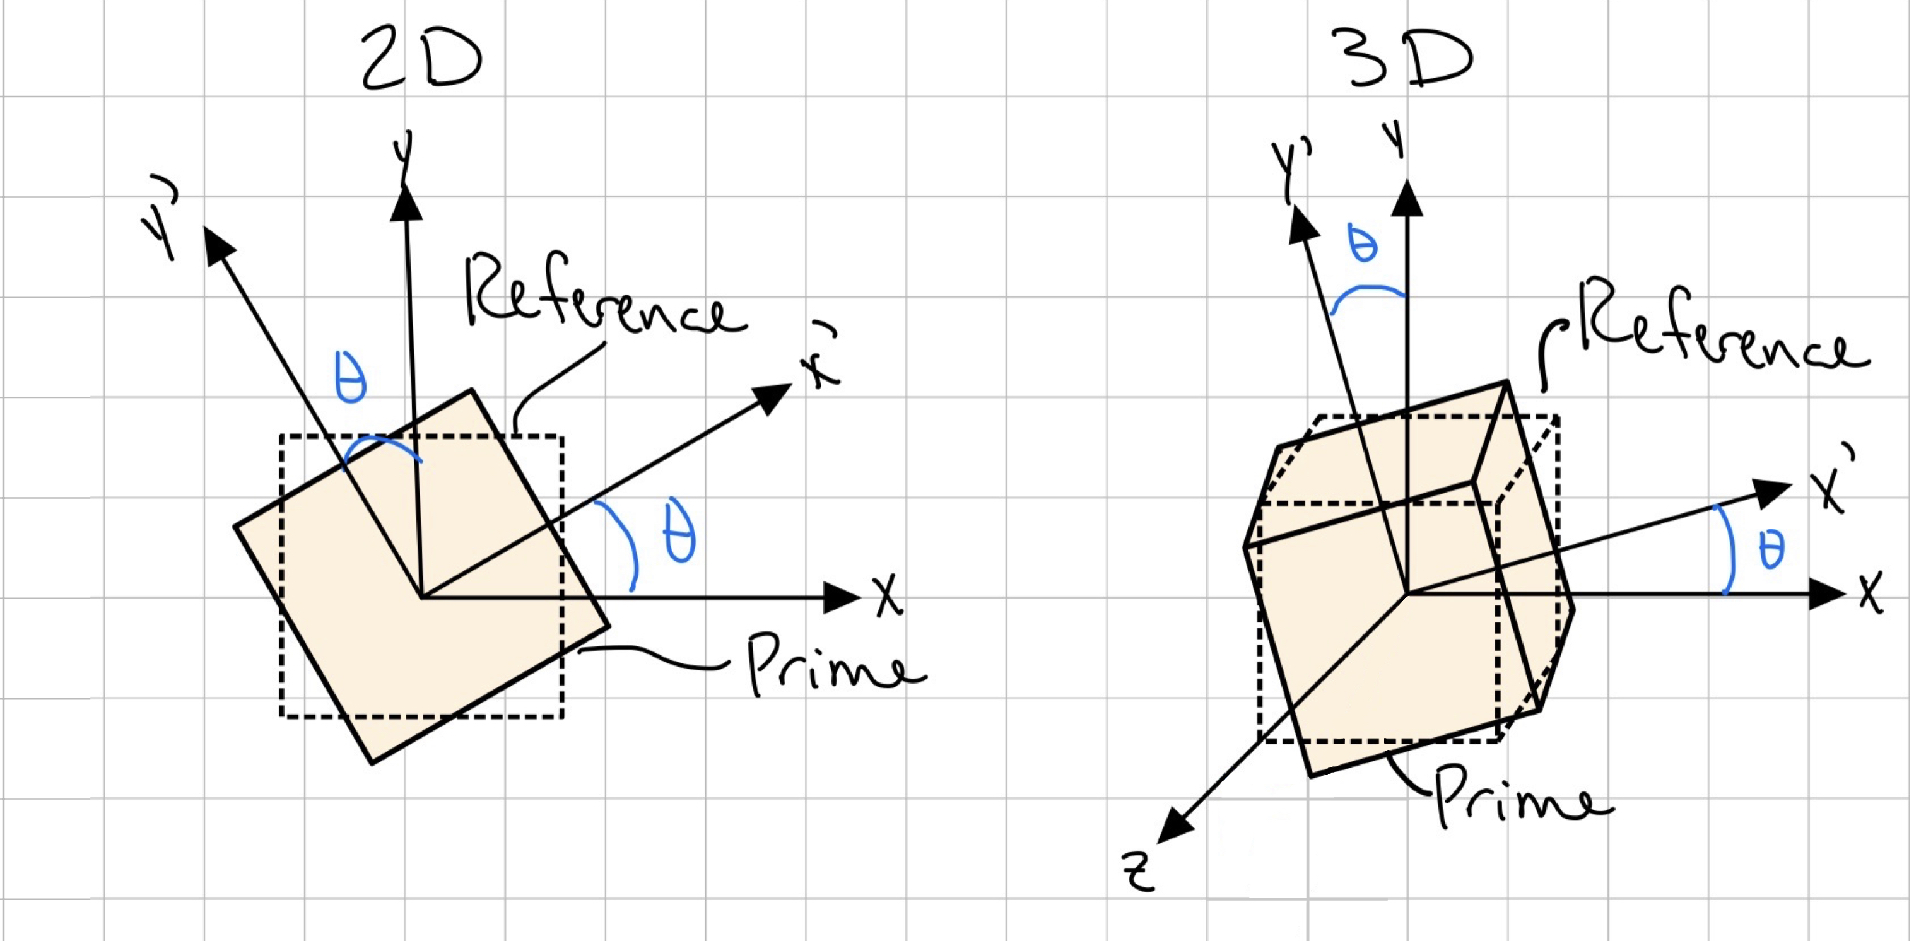 2D
Y
Y'
Reference
θ
X'
θ
X
Prime
3D
Y
Y'
θ
Reference
X'
θ
X
Prime
Z